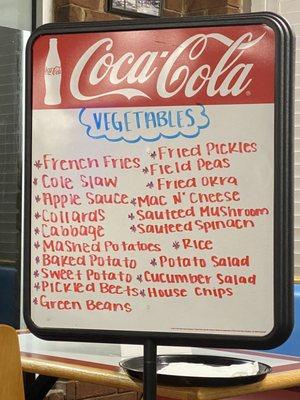 Coca-Cola
Coca-Cola
VEGETABLES
*French Fries
*Cole Slaw
*Apple Sauce
*Collards
*Cabbage
*Mashed Potatoes
*Baked Potato
*Sweet Potato
*Pickled Beets
*Green Beans
*Fried Pickles
*Field Peas
*Fried Okra
*Mac N' Cheese
*Sauteed Mushroom
*Sauteed Spinach
*Rice
*Potato Salad
*Cucumber Salad
*House Chips